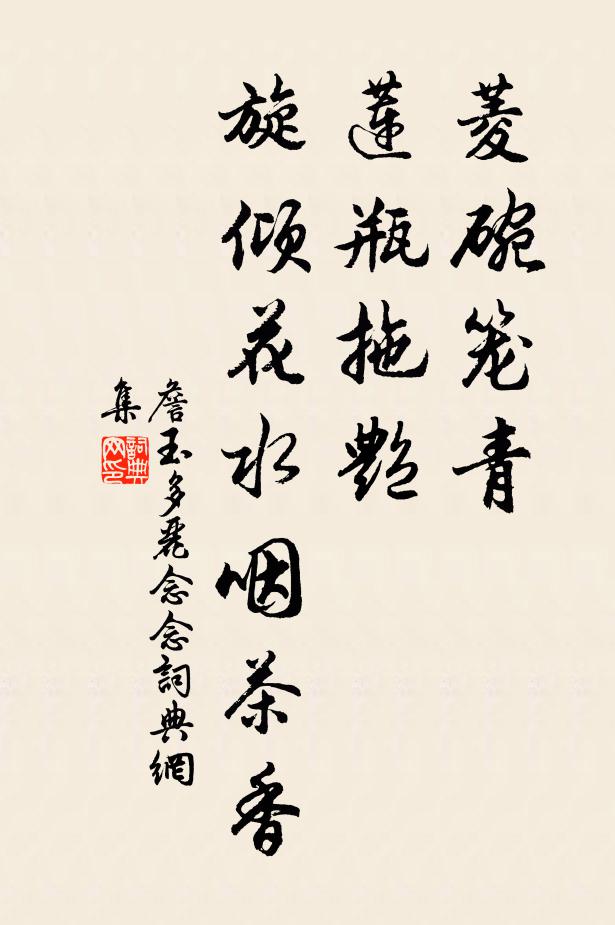 菱碗笼青
莲瓶拖艳
旋倾花水咽茶香
詹玉多麗念念詞典網
集
詞典
网印